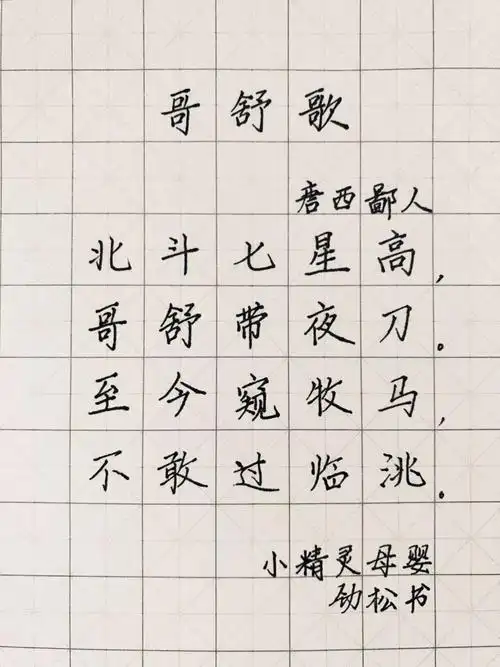 哥舒歌
唐西鄙人
北斗七星高,
哥舒带夜刀。
至今窥牧马,
不敢过临洮。
小精灵母婴
劲松书